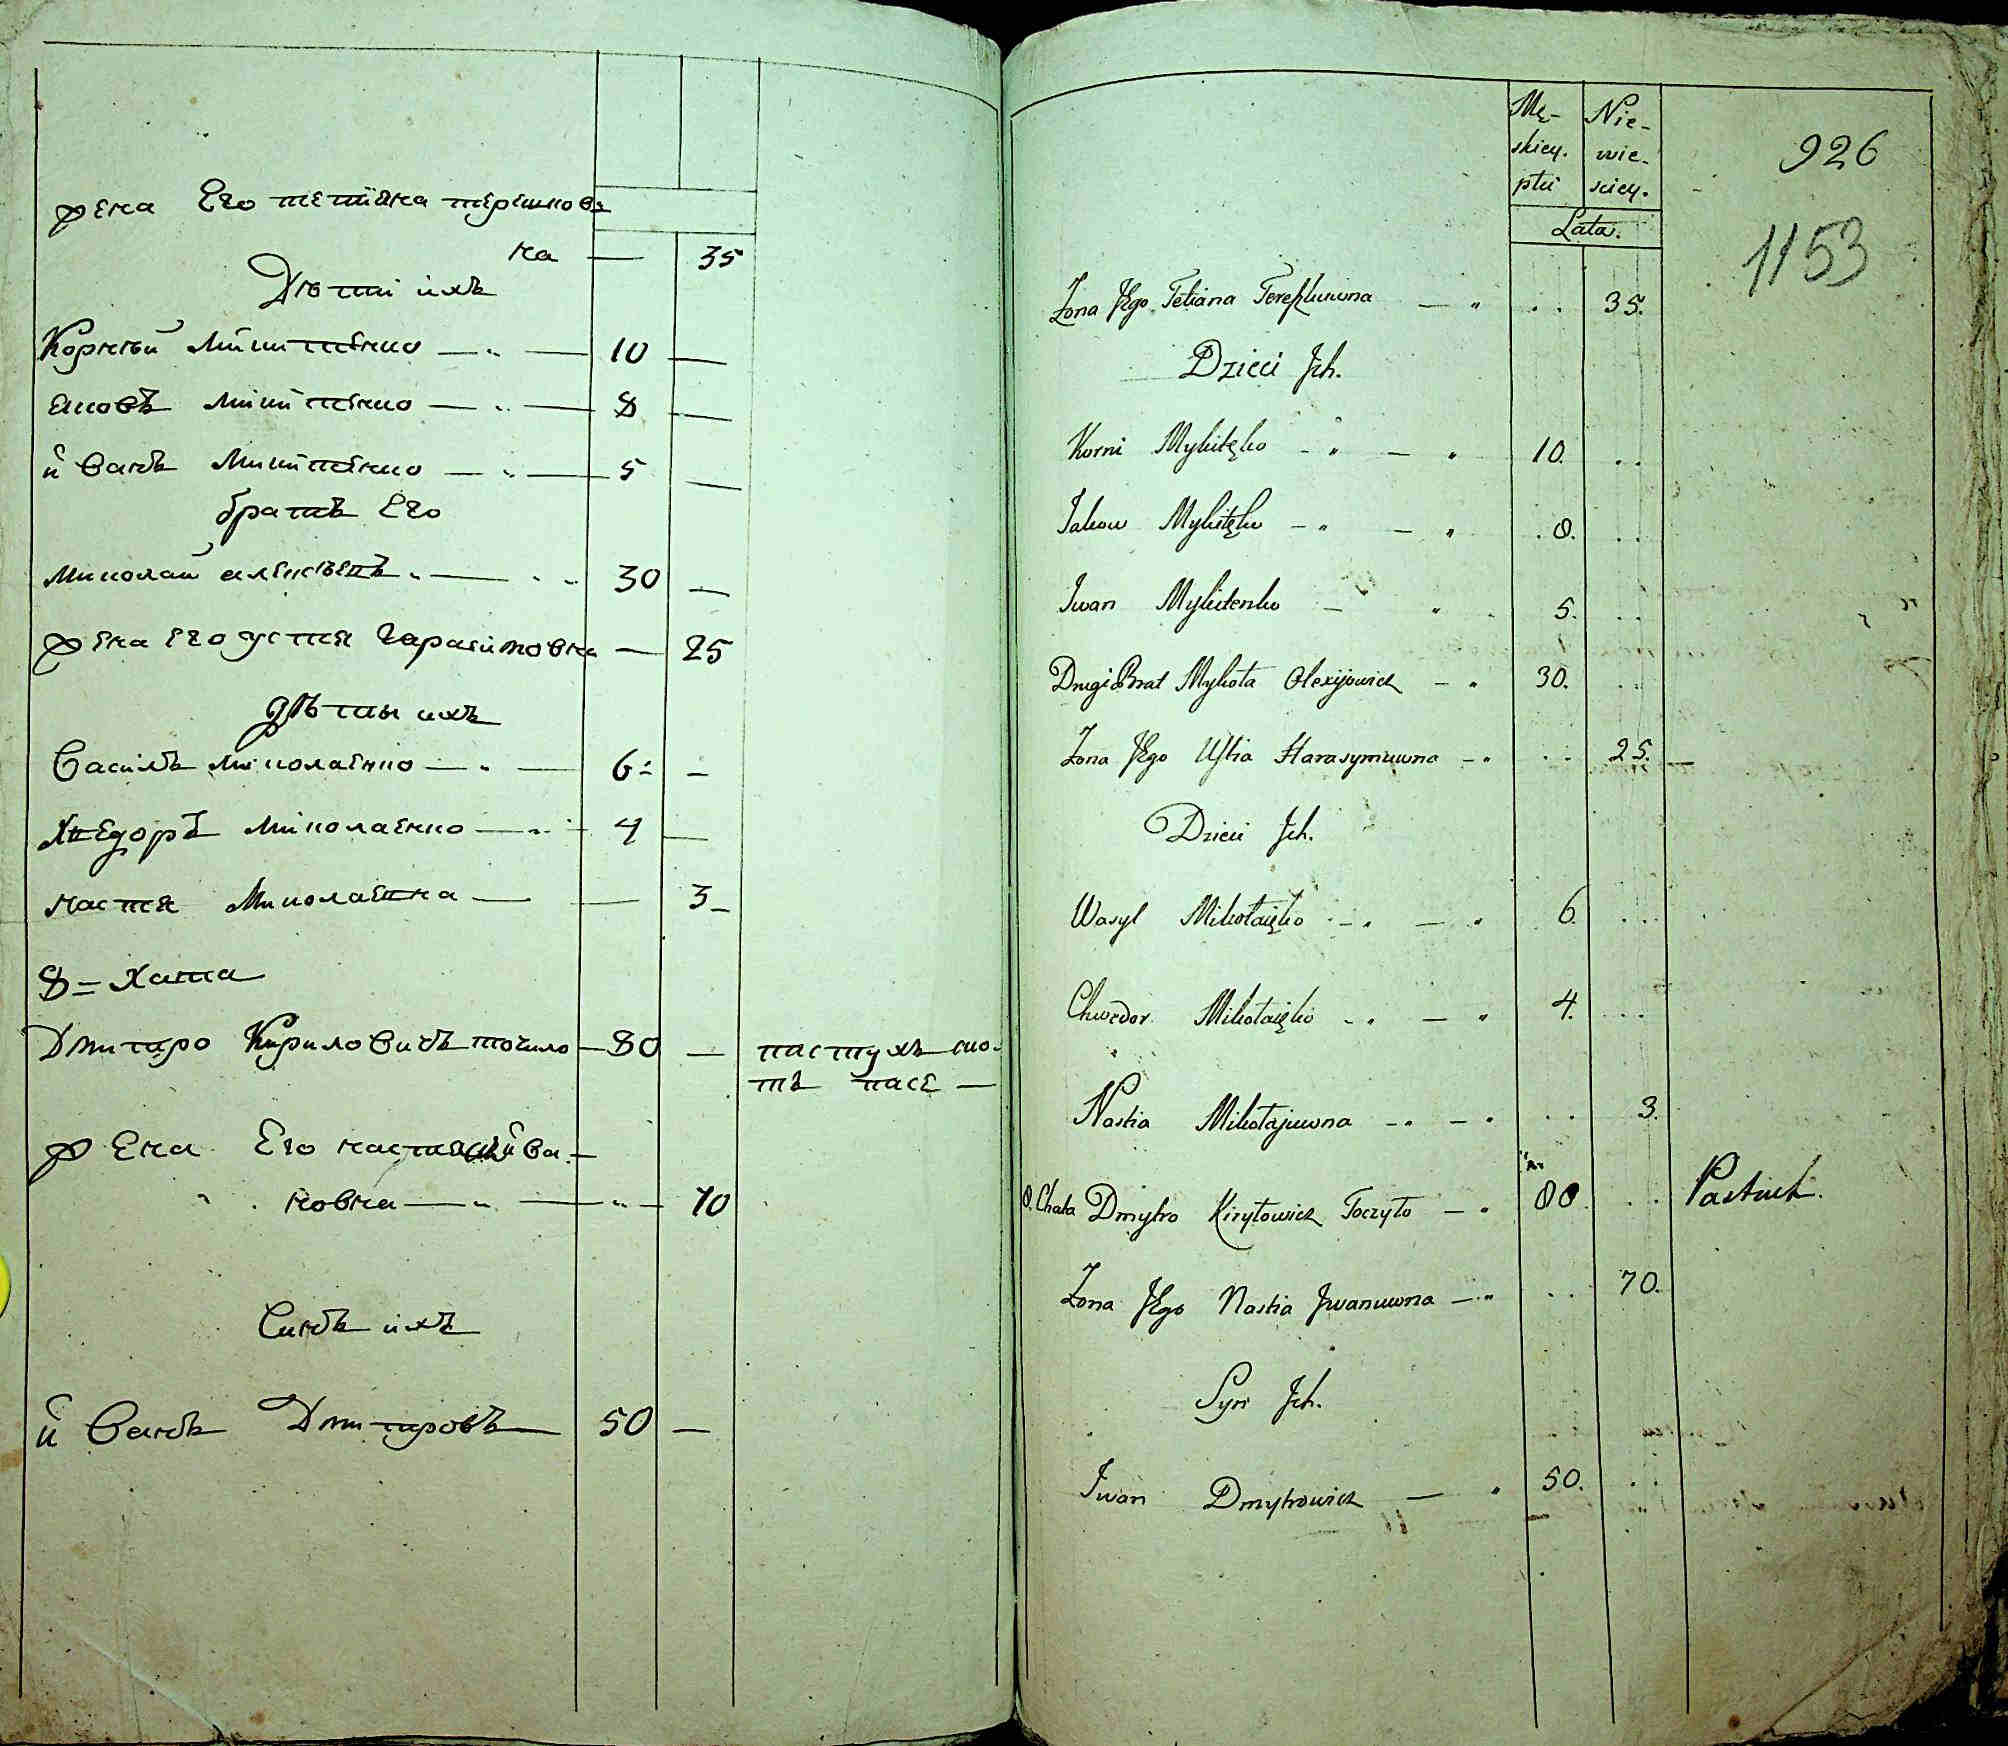 жена Его тетіяна терешков
ка — 35
Дѣти ихъ
Корнѣй Микитенко — " — 10 —
яковъ Микитенко — " — 8 —
иванъ Микитенко — " — 5 —
братъ Его
Миколай алексѣевъ " — " 30 —
жена его устія Гарасимовка — 25
дѣты ихъ
Василь Миколаенко — " — 6 –
Хведоръ Миколаенко — " 4 —
настя Миколаевна — — 3 –
8 = Хата
Дмитро Кириловичъ точило — 80 — пастухъ ско-
тъ пасе —
жена Его настя ива-
новна — " — " — 70
Синъ ихъ
иванъ Дмитровъ — 50 —
Mę- Nie-
skiey. wie-
płci sciey.
Lata.
926
1153
Zona Jego Tetiana Tereszkuwna — " . . 35.
Dzieci Jch.
Korni Mykitęko - " — " 10. . .
Jakow Mykitęko - " — " 8. . .
Jwan Mykitenko — " 5. . .
Drugi Brat Mykoła Olexijowicz - " 30. . .
Zona Jego Ustia Harasymuwna - " . . 25.
Dzieci Jch.
Wasyl Mikołaięko - " — " 6. . .
Chwedor Mikołaięko - " — " 4. . .
Nastia Mikołajuwna - " - " . . 3.
8. Chata Dmytro Kiryłowicz Toczyło - " 80 . . Pastuch.
Zona Jego Nastia Jwanuwna — " . . 70.
Syn Jch.
Jwan Dmytrowicz — " 50. . .